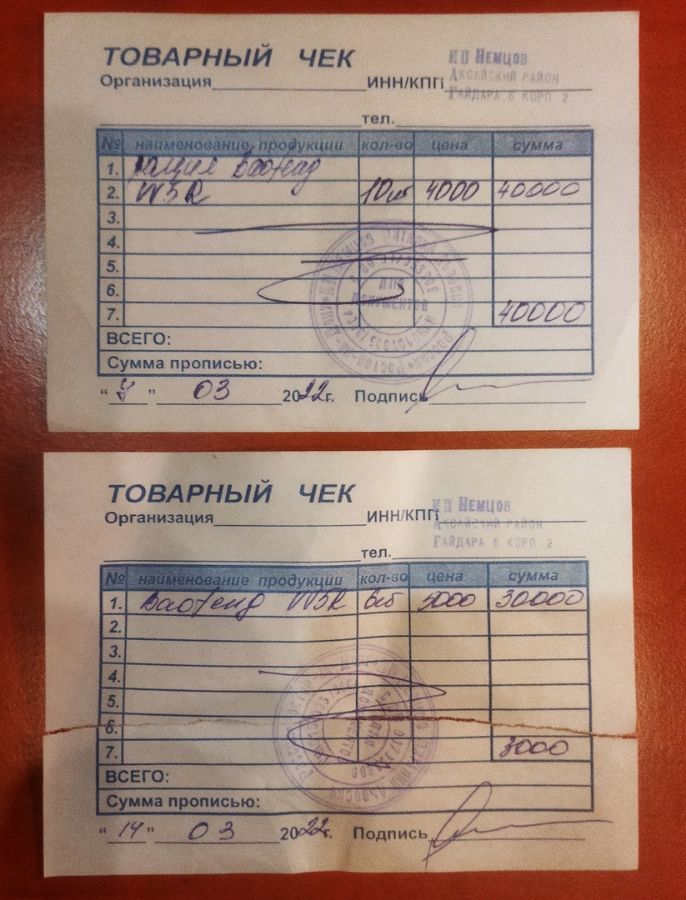 ТОВАРНЫЙ ЧЕК
ИП Немцов
Организация ИНН/КПП
Аксайский район
Гайдара 6 корп 2
тел.
№ наименование продукции кол-во цена сумма
1. рация Baofeng
2. UV5R 10шт 4000 40000
3.
4.
5.
6.
7. 40000
Для
документов
ВСЕГО:
Сумма прописью:
" 7 " 03 2022г. Подпись
ТОВАРНЫЙ ЧЕК
ИП Немцов
Организация ИНН/КПП
Аксайский район
Гайдара 6 корп 2
тел.
№ наименование продукции кол-во цена сумма
1. Baofeng UV5R 6шт 5000 30000
2.
3.
4.
5.
6.
7. 3000
ВСЕГО:
Сумма прописью:
" 14 " 03 2022г. Подпись